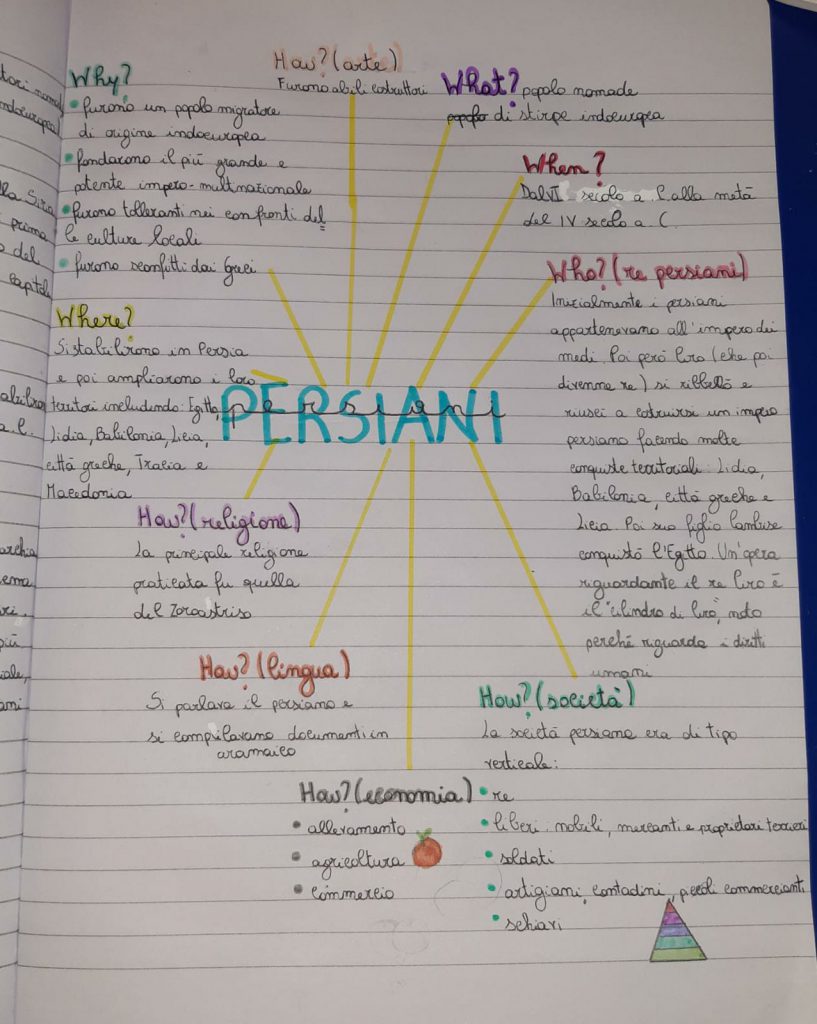 How? (arte)
Furono abili costruttori
Why?
• furono un popolo migratore
di origine indoeuropea
• fondarono il più grande e
potente impero multinazionale
• furono tolleranti nei confronti del
le culture locali
• furono sconfitti dai Greci
What? popolo nomade
popolo di stirpe indoeuropea
When?
Dal VI secolo a.C. alla metà
del IV secolo a.C.
Who? (re persiani)
Inizialmente i persiani
appartenevano all'impero dei
medi. Poi però Ciro (che poi
divenne re) si ribellò e
riuscì a costruirsi un impero
persiano facendo molte
conquiste territoriali: Lidia,
Babilonia, città greche e
Licia. Poi suo figlio Cambise
conquistò l'Egitto. Un'opera
riguardante il re Ciro è
il "cilindro di Ciro", noto
perché riguarda i diritti
umani
Where?
Si stabilirono in Persia
e poi ampliarono i loro
territori includendo: Egitto,
Lidia, Babilonia, Licia,
città greche, Tracia e
Macedonia
PERSIANI
persiani
How? (religione)
La principale religione
praticata fu quella
del Zoroastriso
How? (lingua)
Si parlava il persiano e
si compilavano documenti in
aramaico
How? (società)
La società persiana era di tipo
verticale:
• re
• liberi: nobili, mercanti e proprietari terrieri
• soldati
• artigiani, contadini, piccoli commercianti
• schiavi
How? (economia)
• allevamento
• agricoltura
• commercio